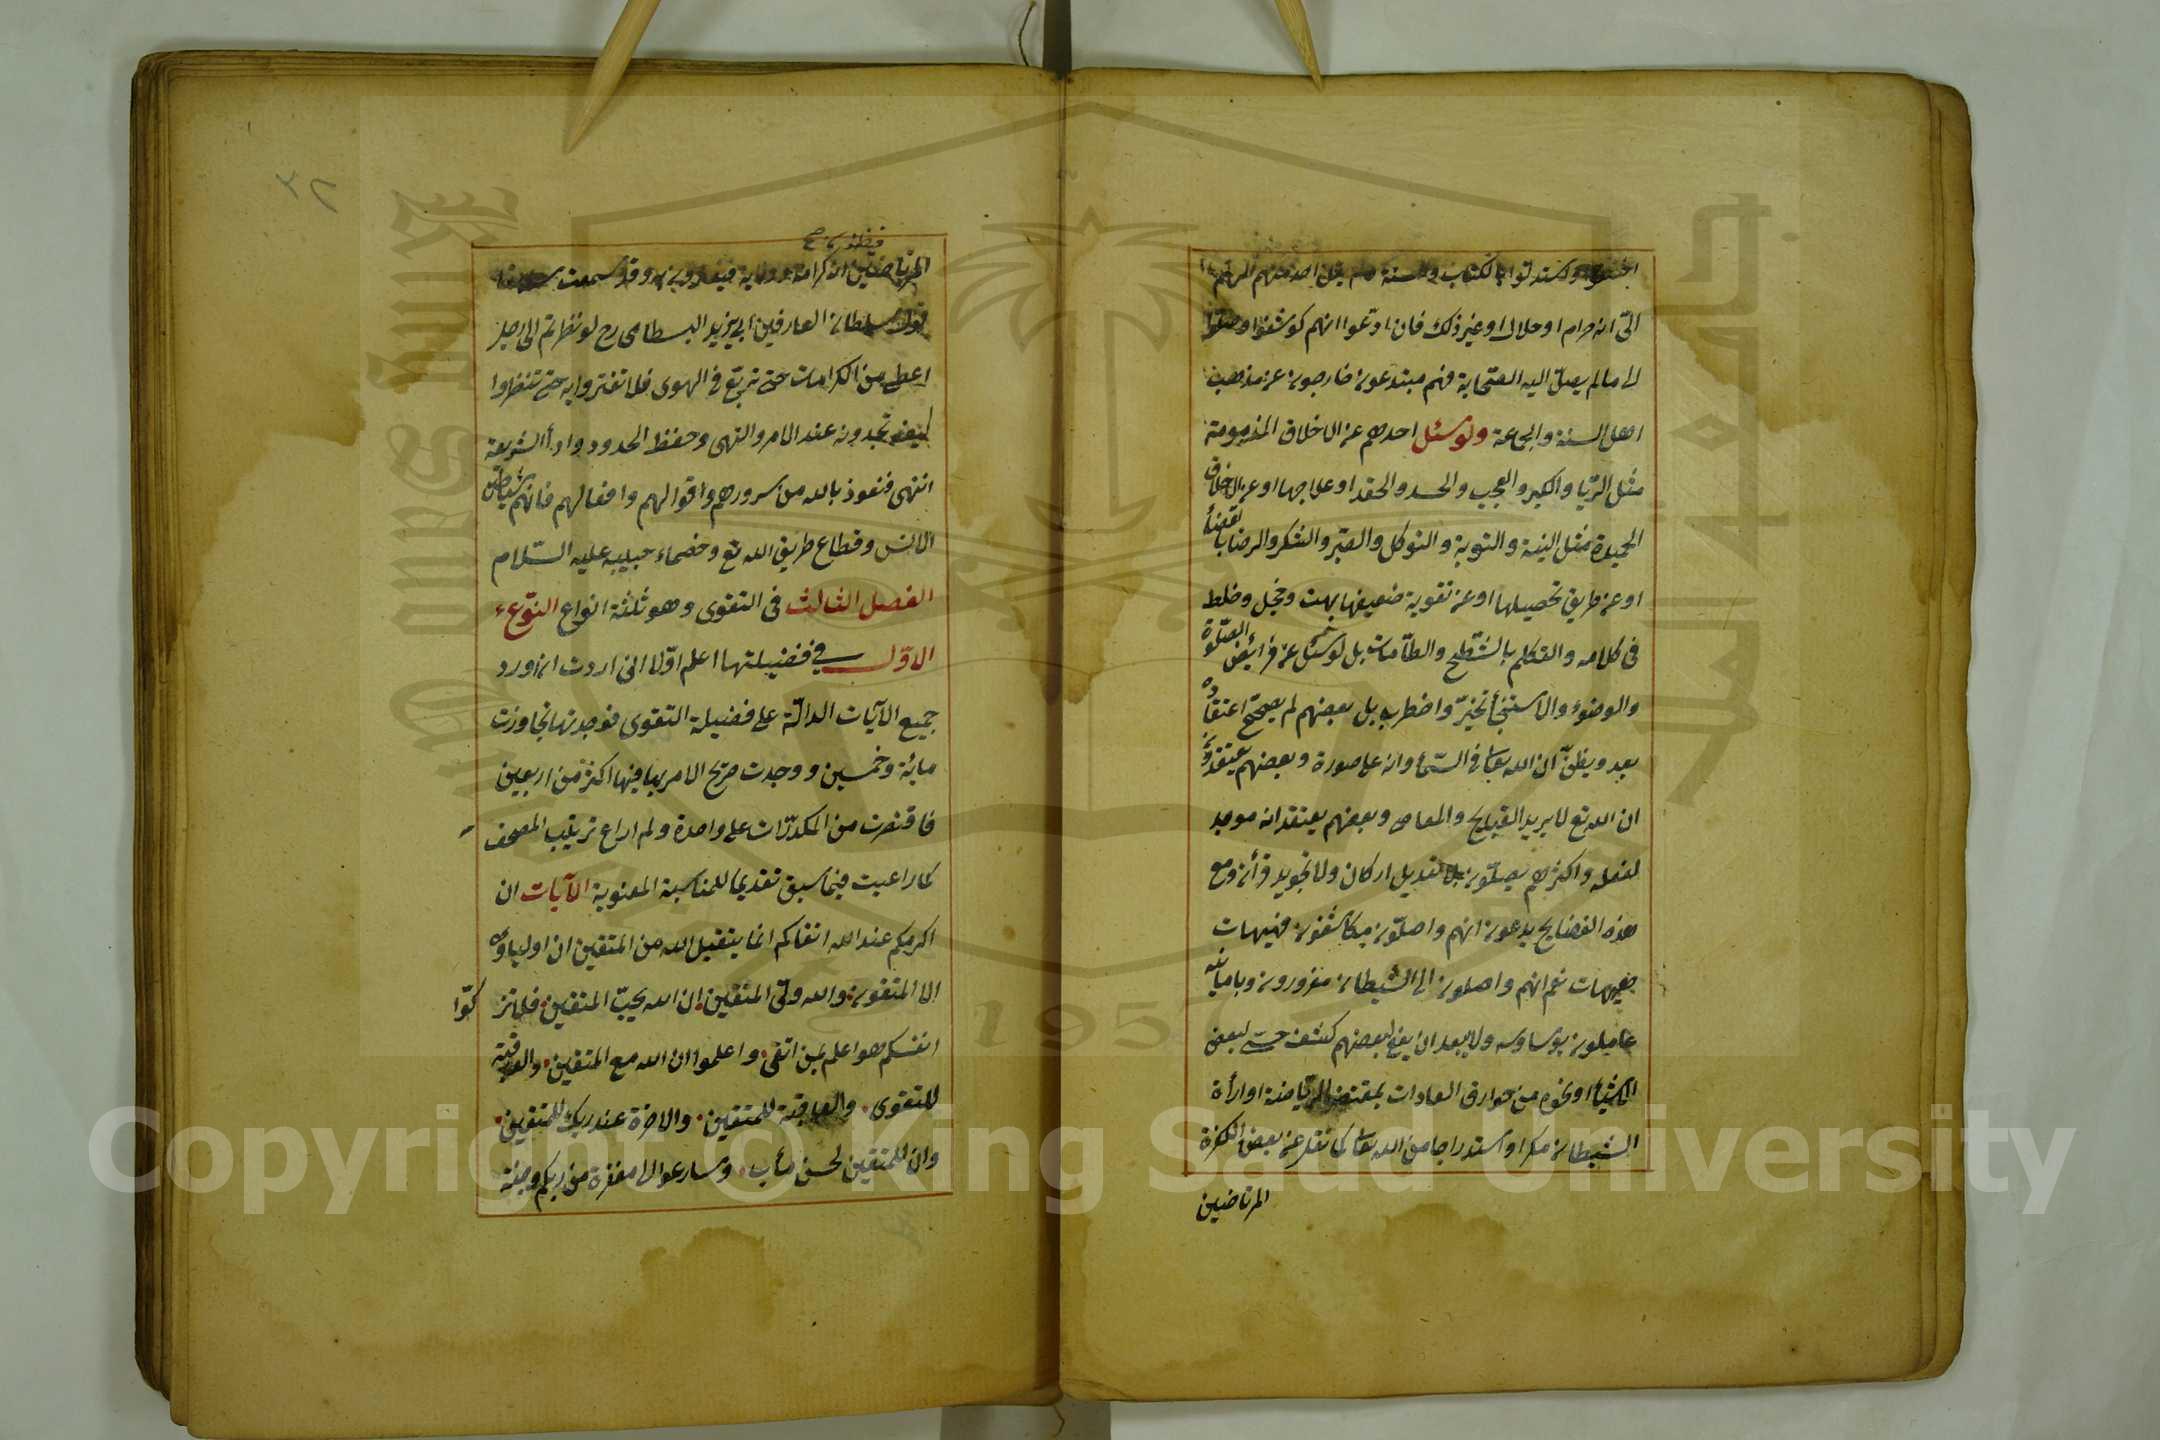 اجتهدوا واستدلوا بالكتاب والسنة ولم يقل احد منهم الهمنى
الىّ انه حرام او حلال او غير ذلك فان ادّعوا انهم كوشفوا وصلوا
الى ما لم يصل اليه الصّحابة فهم مبتدعون خارجون عن مذهب
اهل السنة والجماعة ولو سئل احدهم عن الاخلاق المذمومة
مثل الرّيا والكبر والعجب والحسد والحقد او علاجها او عن الاخلاق
الحميدة مثل النية والتوبة والتوكل والصّبر والشكر والرضا بالقضأ
او عن طريق تحصيلها او عن تقوية ضعيفها بهت وخجل وخلط
فى كلامه والتكلم بالشّطح والطّامات بل لو سئل عن فرائض الصّلوة
والوضوء والاستنجأ تحيّر واضطرب بل بعضهم لم يصحّح اعتقاده
بعد ويظنّ ان الله تعالى فى السّمأ وانه على صورة وبعضهم يعتقدون
ان الله تع لا يريد القبايح والمعاصى وبعضهم يعتقد انه موجد
لفعله واكثرهم يصلّون بلا تعديل اركان ولا تجويد قرأن ومع
هذه الفضايح يدعون انهم واصلون مكاشفون فهيهات
هيهات نعم انهم واصلون الى الشيطان مغرورون وبامانيه
عاملون بوساوسه ولا يبعد ان يقع لبعضهم كشف حسّى لبعض
الاشيأ او نحوه من خوارق العادات بمقتضى الرّياضة او ارأة
الشيطان مكرا واستدراجا من الله تعالى كما نقل عن بعض الكفرة
المرتاضين
فيظنون
المرتاضين انه كرامة وولاية فيغترون به وقد سمعت سابقا
قول سلطان العارفين ابى يزيد البسطامى رح لو نظرتم الى رجل
اعطى من الكرامات حتى تربّع فى الهوى فلا تغتروا به حتى تنظروا
كيف تجدونه عند الامر والنهى وحفظ الحدود وادأ الشريعة
انتهى فنعوذ بالله من شرورهم واقوالهم وافعالهم فانهم شياطين
الانس وقطاع طريق الله تع وخصماء حبيبه عليه السّلام
الفصل الثالث فى التقوى وهو ثلثة انواع النّوع
الاوّل فى فضيلتها اعلم اوّلا انى اردت ان اورد
جميع الآيات الدالّة على فضيلة التقوى فوجدتها تجاوزت
مائة وخمسين ووجدت صريح الامر بها فيها اكثر من اربعين
فاقتصرت من المكررّات على واحدة ولم اراع ترتيب المصحف
كما راعيت فيما سبق تقديما للمناسبة المعنوية الآيات ان
اكرمكم عند الله اتقاكم انما يتقبل الله من المتقين ان اولياؤه
الا المتقون والله ولىّ المتقين ان الله يحبّ المتقين فلا تزكّوا
انفسكم هو اعلم بمن اتقى واعلموا ان الله مع المتقين والعاقبة
للتقوى والعاقبة للمتقين والاخرة عند ربك للمتقين
وان للمتقين لحسن مآب وسارعوا الى مغفرة من ربكم وجنة
Copyright © King Saud University
1957